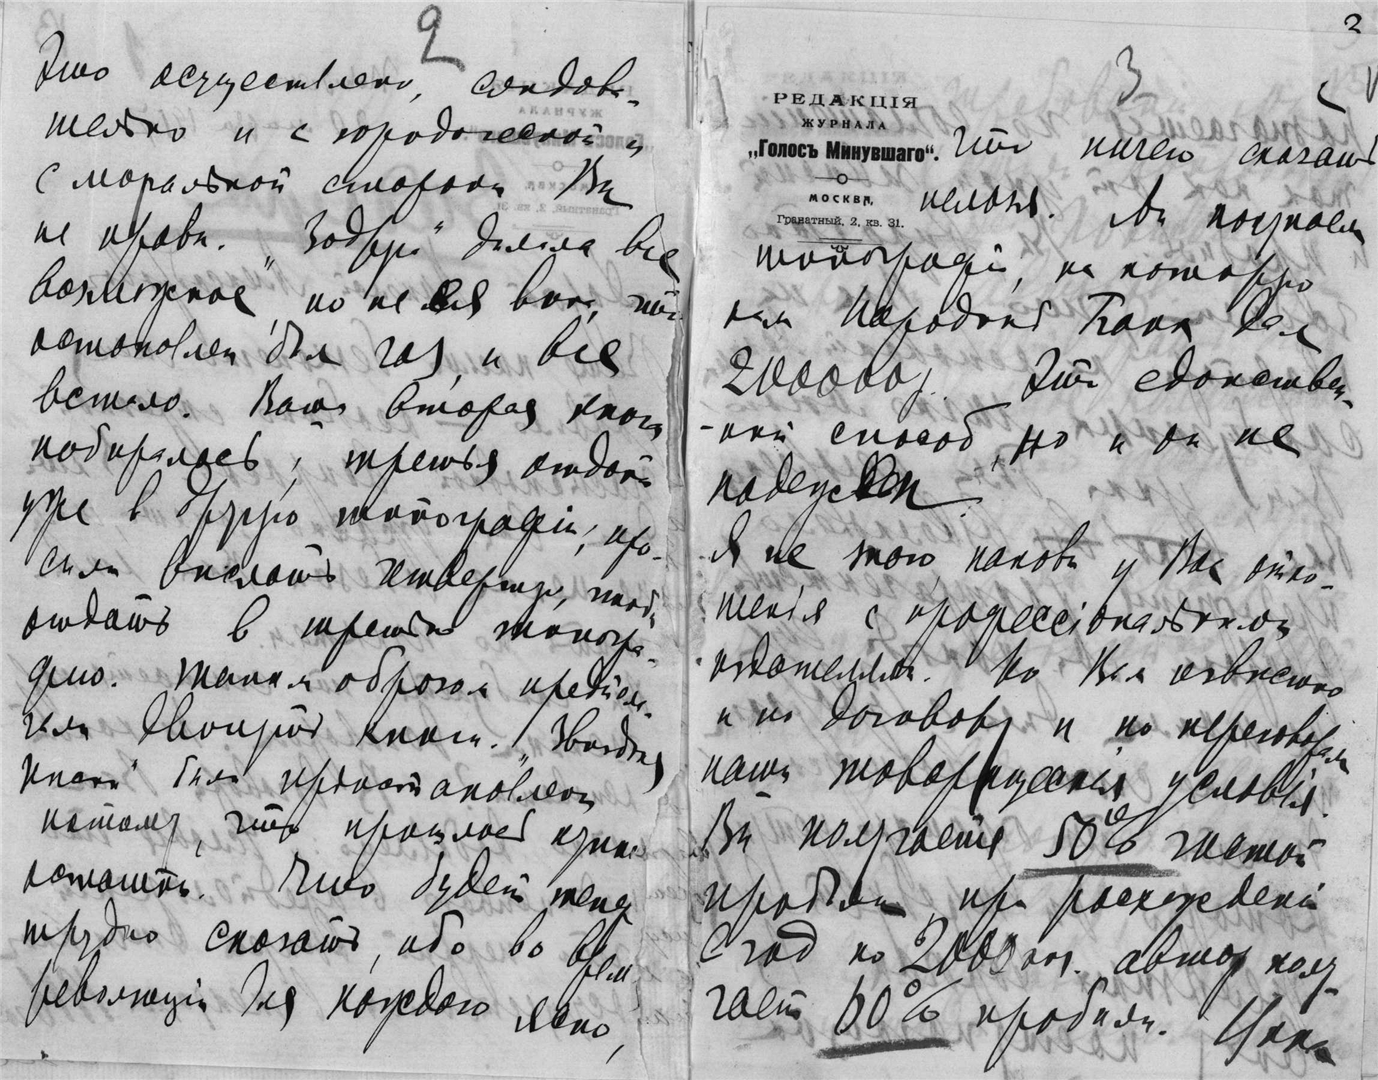 2
Это осуществлено, следова-
тельно и с юродической и
с моральной стороны Вы
не правы. „Задруга" делала все
возможное, но не ея вина, что
остановлен был газ, и все
встало. Ваша вторая книга
набиралась, третья отдана
уже в другую типографію, про-
сили выслать четвертую, чтобы
отдать в третью типогра-
фию. Таким образом
книги. „Звездная
книга" была пріостановлена
потому, что прошлось
оставить. Что будет теперь
трудно сказать, ибо во время
революціи для каждого ясно,
3
3
РЕДАКЦІЯ
ЖУРНАЛА
„Голосъ Минувшаго".
МОСКВА,
Гранатный, 2, кв. 31.
что ничего сказать
нельзя. Мы покупаем
типографію, на которую
нам Народный Банк дал
200000 р. Это единствен-
ный способ, но и он не
надежен.
Я не знаю, каковы у Вас отно-
шенія с профессіональными
издателями. Но Вам известно
и по договору и по переговорам
наши товарищескія условія.
Вы получаете 50% чистой
прибыли, при расхожденіи
в год по 2000 экз. автор полу-
чает 60% прибыли. Цена